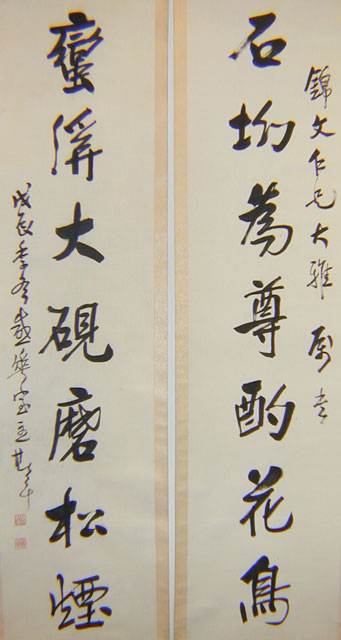 錦文仁兄大雅屬
石坳為尊酌花鳥
蠻谿大硯磨松煙
戊辰季冬